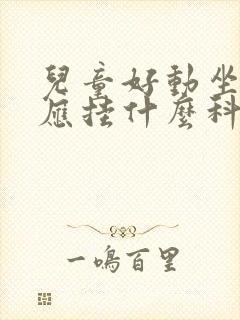 兒童好動坐
應掛什麼科
一鳴百里